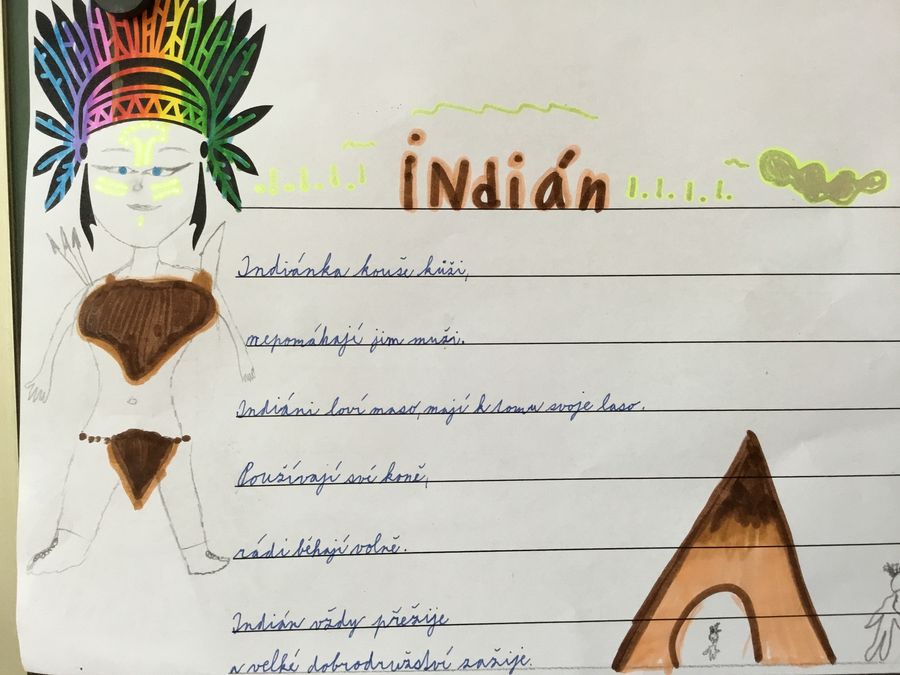 indián
Indiánka kouše kůži,
nepomáhají jim muži.
Indiáni loví maso, mají k tomu svoje laso.
Používají své koně,
rádi běhají volně.
Indián vždy přežije
a velké dobrodružství zažije.